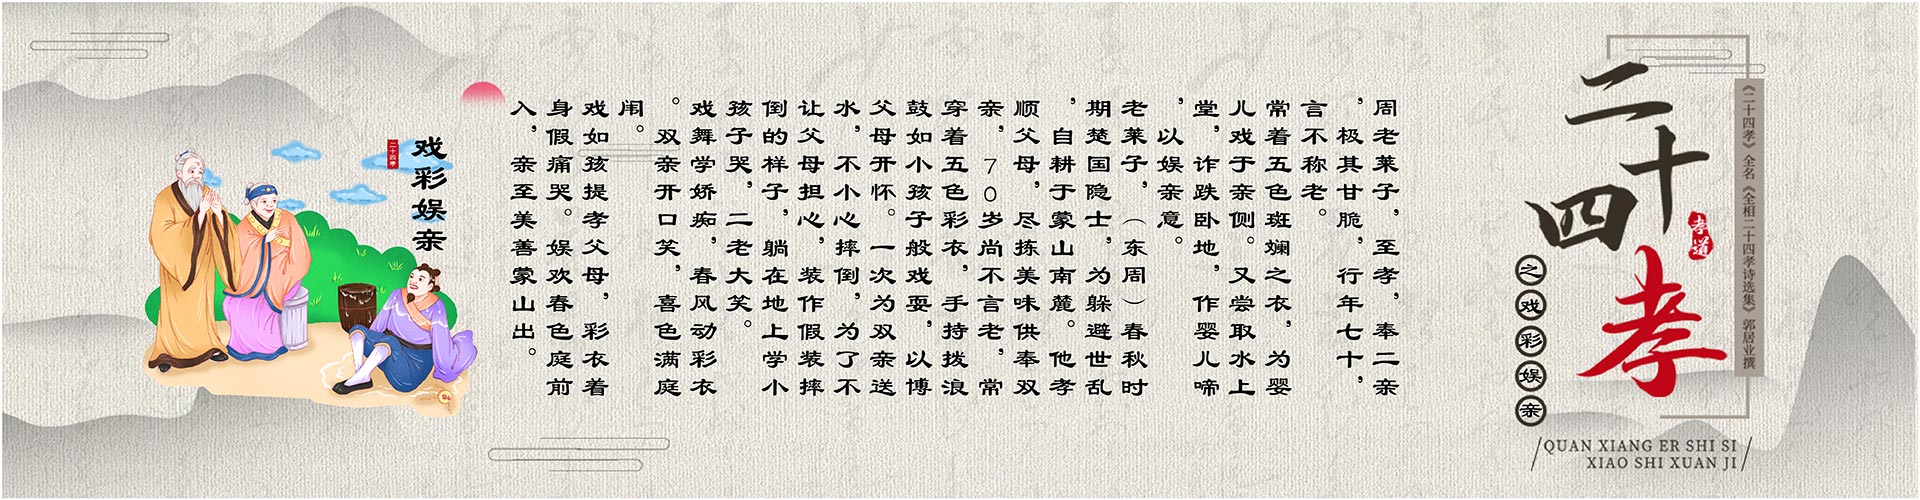 二十四孝
孝道
《二十四孝》全名《全相二十四孝诗选集》郭居业撰
之戏彩娱亲
QUAN XIANG ER SHI SI
XIAO SHI XUAN JI
周老莱子，至孝，奉二亲
，极其甘脆，行年七十，
言不称老。
常着五色斑斓之衣，为婴
儿戏于亲侧。又尝取水上
堂，诈跌卧地，作婴儿啼
，以娱亲意。
老莱子，（东周）春秋时
期楚国隐士，为躲避世乱
，自耕于蒙山南麓。他孝
顺父母，尽拣美味供奉双
亲，70岁尚不言老，常
穿着五色彩衣，手持拨浪
鼓如小孩子般戏耍，以博
父母开怀。一次为双亲送
水，不小心摔倒，为了不
让父母担心，装作假装摔
倒的样子，躺在地上学小
孩子哭，二老大笑。
戏舞学娇痴，春风动彩衣
。双亲开口笑，喜色满庭
闱。
戏如孩提孝父母，彩衣着
身假痛哭。娱欢春色庭前
入，亲至美善蒙山出。
戏彩娱亲
二十四孝